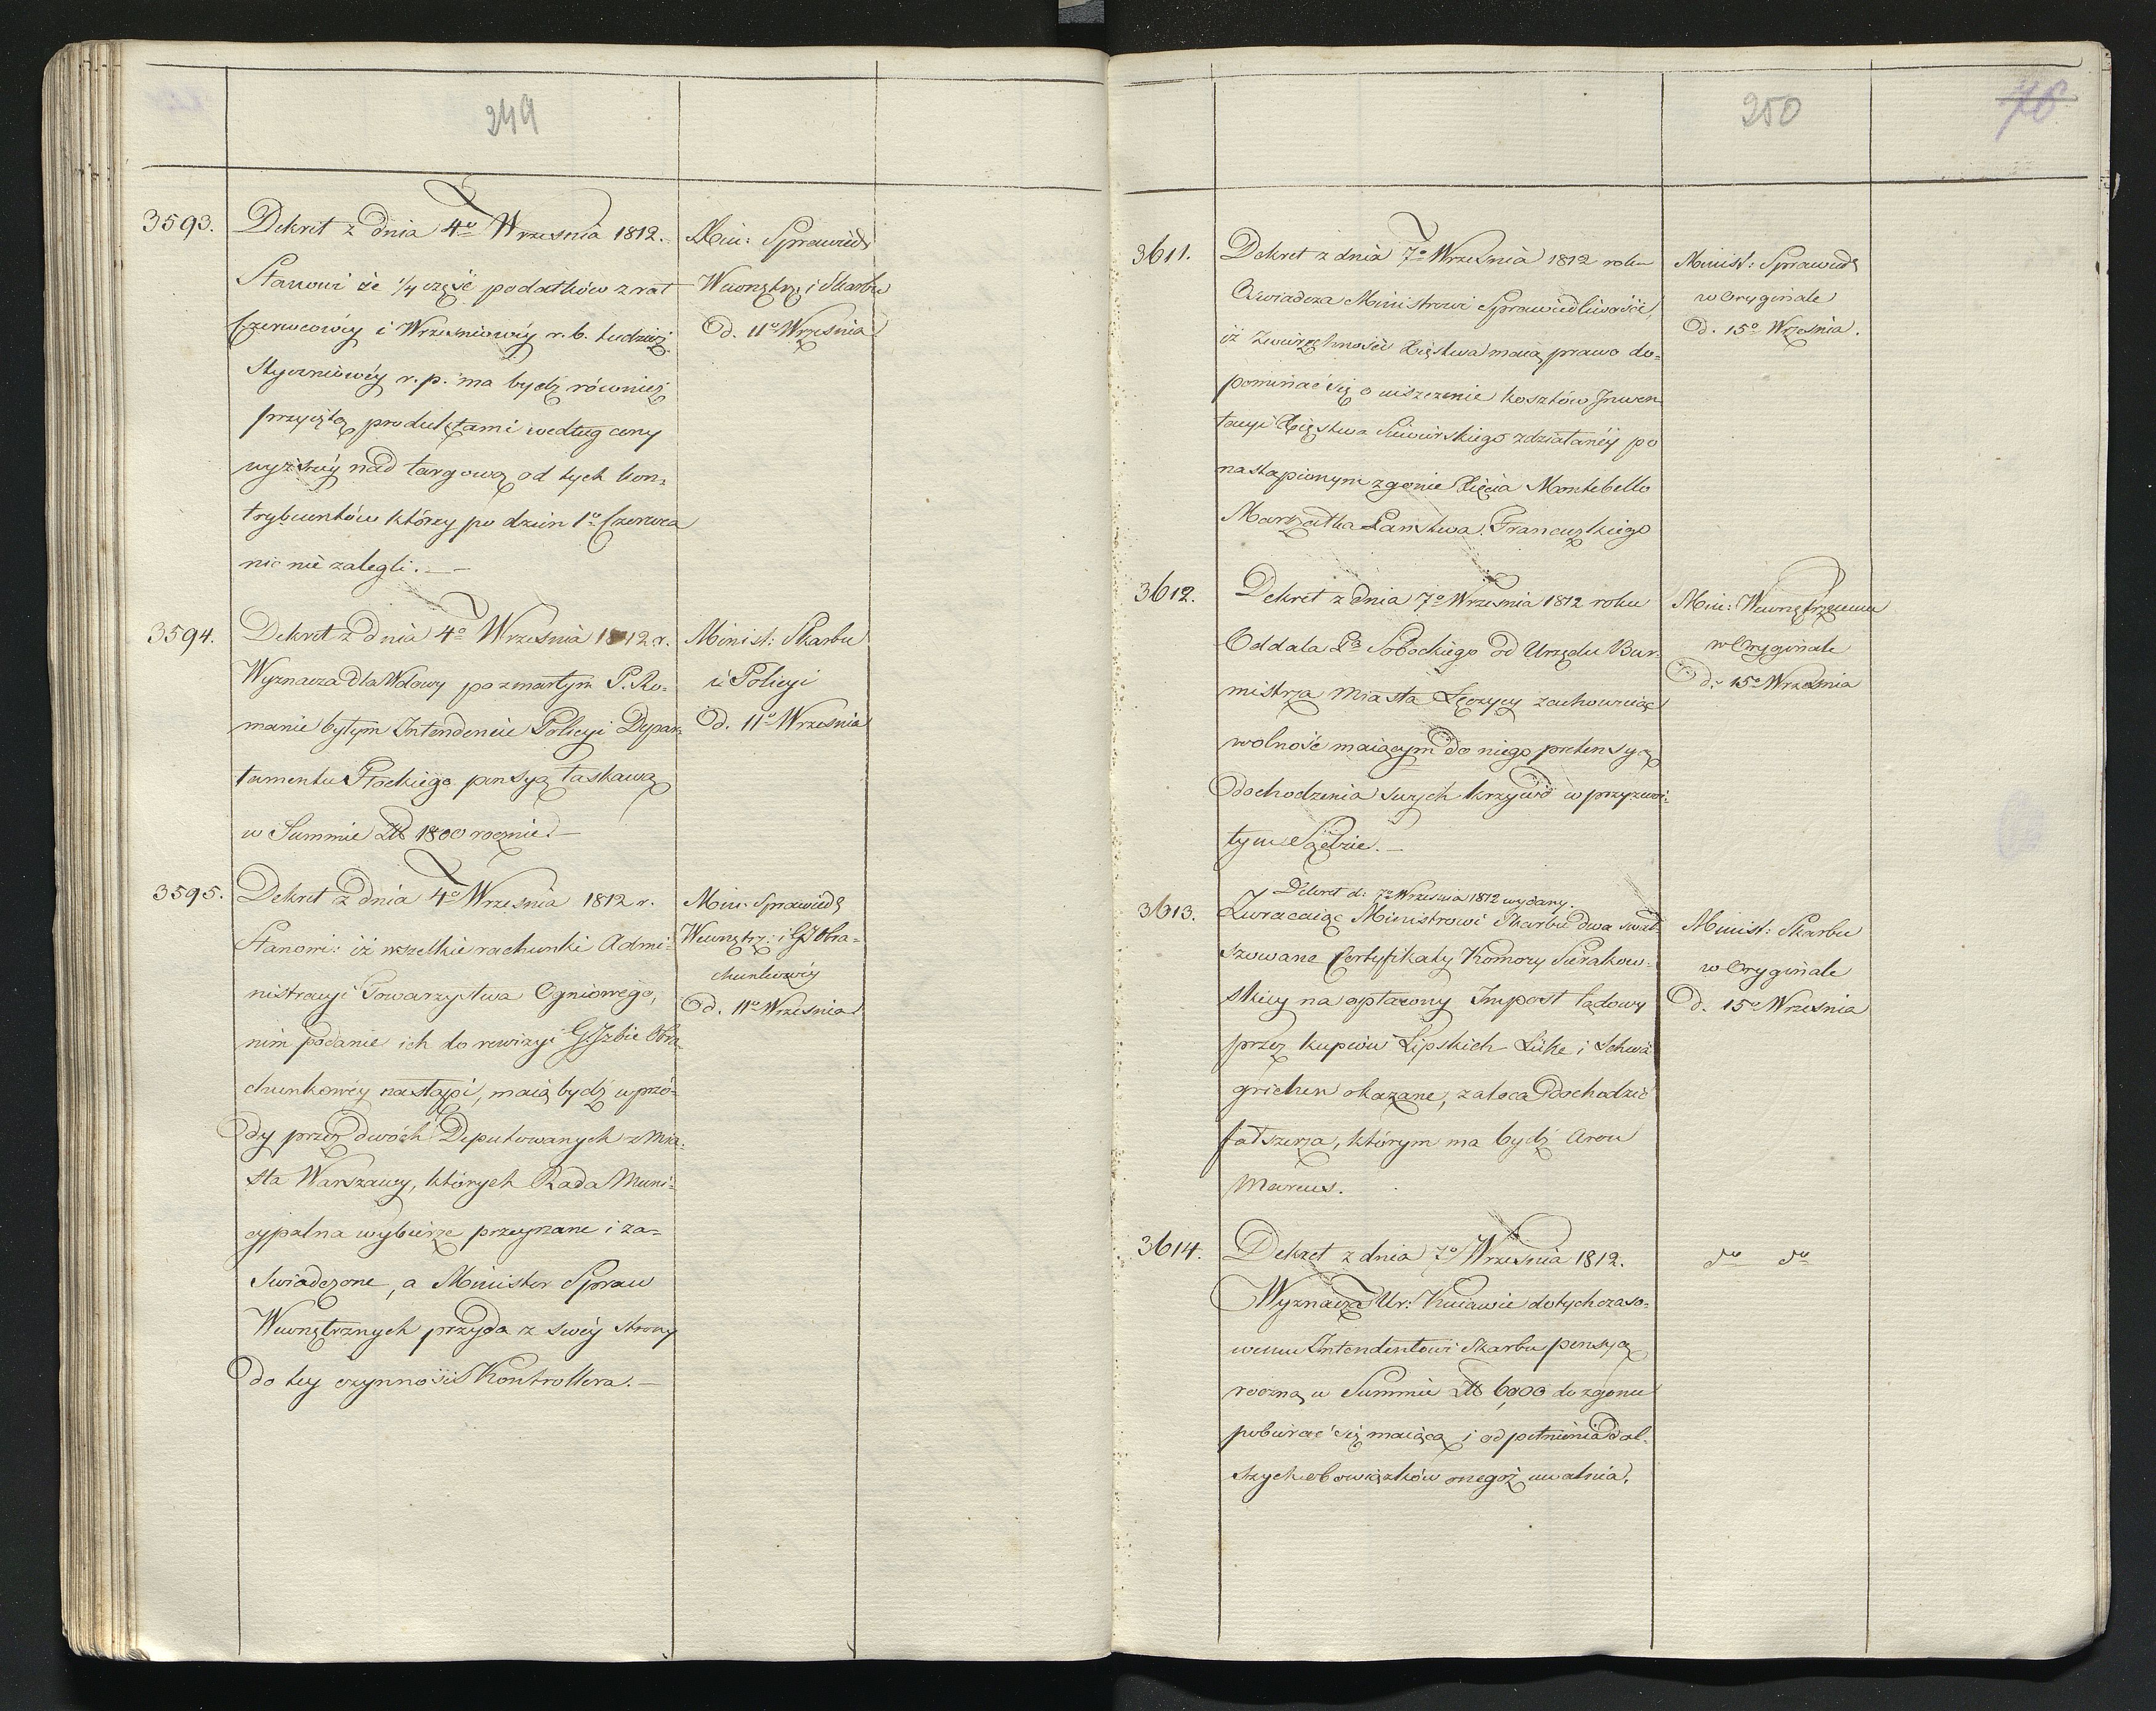 249
3593. Dekret z dnia 4º Wrzesnia 1812.
Stanowi że 1/4 część podatków z rat
Czerwcowéy i Wrzesniowéy r. b. tudzież
Styczniowéy r. p. ma bydź również
przyiętą produktami według ceny
wyższéy nad targową od tych kon-
trybuentów którzy po dzień 1º Czerwca
nic nie zalegli. —
Min: Sprawied
Wewnętrz i Skarbu
Od. 11º Września
3594. Dekret z dnia 4º Wrzesnia 1812 r.
Wyznacza dla Wdowy po zmarłym P. Ro-
manie byłym Intendencie Policyi Depar-
tamentu Płockiego pensyą łaskawą
w Summie Zł 1800 rocznie. —
Minist: Skarbu
i Policyi
Od. 11º Wrzesnia
3595. Dekret z dnia 4º Wrzesnia 1812 r.
Stanowi: iż wszelkie rachunki Admi-
nistracyi Towarzystwa Ogniowego,
nim podanie ich do rewizyi Gł Izbie Obra-
chunkowéy nastąpi, maią bydź wprzó-
dy przez dwóch Deputowanych z Mia-
sta Warszawy, których Rada Muni-
cypalna wybierze przeyrzane i za-
swiadczone, a Minister Spraw
Wewnętrznych przyda z swéy strony
do tey czynności Kontrollera. —
Min: Sprawied
Wewnętrz: i Gł Obra-
chunkowéy
Od. 11º Wrzesnia
250
76
3611. Dekret z dnia 7º Wrzesnia 1812 roku
Oświadcza Ministrowi Sprawiedliwości,
iż Zwierzchności Xięstwa maią prawo do-
pominać się o uiszczenie kosztów Inwen-
tacyi Xięstwa Siewierskiego zdziałanéy po
nastąpionym zgonie Xięcia Montebello
Marszałka Państwa Francuzkiego
Minist: Sprawied
w Oryginale
Od. 15º Wrzesnia.
3612. Dekret z dnia 7º Wrzesnia 1812 roku
Oddala Pa Sobockiego od Urzędu Bur-
mistrza Miasta Łęczycy zachowuiąc
wolność maiącym do niego pretensyą
dochodzenia swych krzywd w przyzwoi-
tym Sądzie. —
Min: Wewnętrznemu
w Oryginale
Od. 15º Wrzesnia
3613. Dekret d: 7º Wrzesnia 1812 wydany.
Zwracaiąc Ministrowi Skarbu dwa sfał-
szowane Certyfikaty Komory Sierakow-
skiey na opłacony Impost lądowy
przez kupców Lipskich Lüke i Schwä
grichen okazane, zaleca dochodzić
fałszerza, którym ma bydź Aron
Marcus.
Minist: Skarbu
w Oryginale
Od. 15º Wrzesnia
3614. Dekret z dnia 7º Wrzesnia 1812.
Wyznacza Ur: Kuiawie dotychczaso-
wemu Intendentowi Skarbu pensyą
roczną w Summie Zł 6,000 do zgonu
pobierać się maiącą i od pełnienia dal-
szych obowiązków onegoż uwalnia.
do do